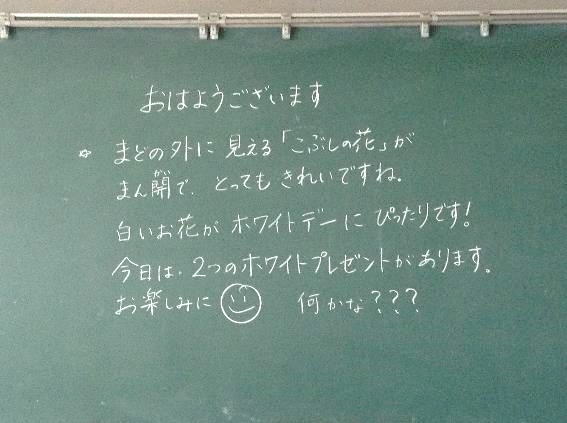 おはようございます
☆ まどの外に見える「こぶしの花」が
まん開で、とってもきれいですね。
白いお花がホワイトデーにぴったりです!
今日は、2つのホワイトプレゼントがあります。
お楽しみに 何かな???